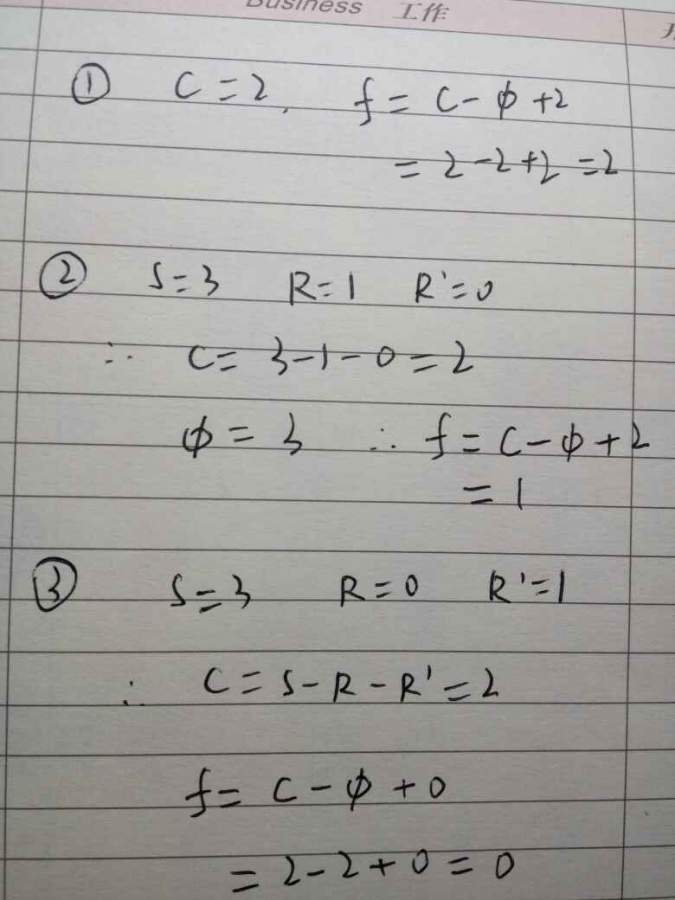 Business 工作
① C=2, f=C-φ+2
=2-2+2=2
② S=3 R=1 R'=0
∴ C=3-1-0=2
φ=3 ∴ f=C-φ+2
=1
③ S=3 R=0 R'=1
∴ C=S-R-R'=2
f=C-φ+0
=2-2+0=0